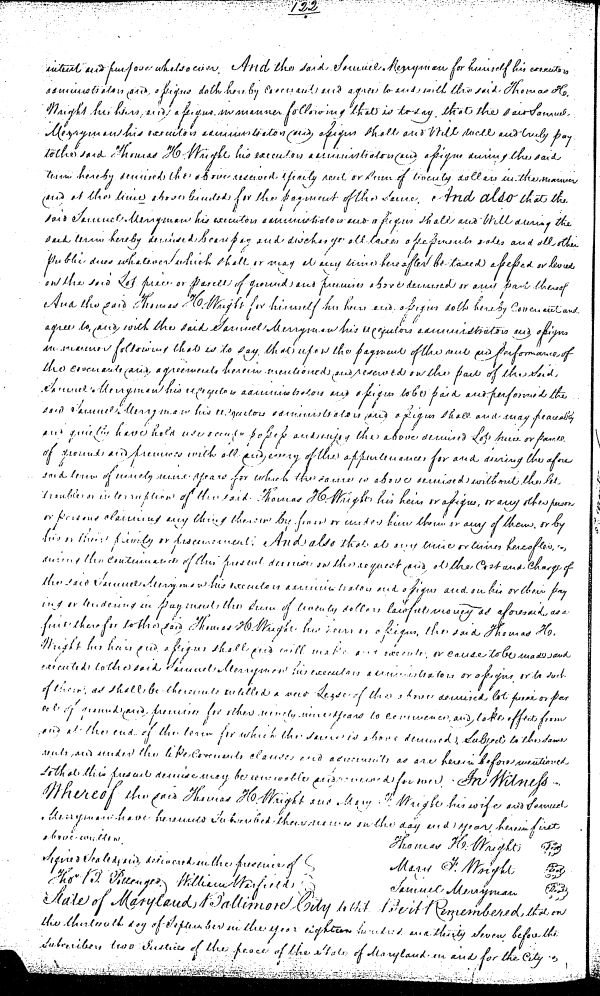 122
intent and purpose whatsoever. And the said Samuel Merryman for himself his executors
administrators and assigns doth hereby Covenant and agree to and with the said Thomas H.
Wright his heirs and assigns in manner following that is to say, that the said Samuel
Merryman his executors administrators and assigns shall and Will well and truly pay
to the said Thomas H. Wright his executors administrators and assigns during the said
term hereby demised the above reserved yearly rent or Sum of twenty dollars in the manner
and at the time above limited for the payment of the Same. And also that the
said Samuel Merryman his executors administrators and assigns shall and Will during the
said term hereby demised bear pay and discharge all taxes assessments rates and all other
public dues whatever which shall or may at any time hereafter be taxed assessed or levied
on the said Lot piece or parcel of ground and premises above demised or any part thereof
And the said Thomas H. Wright for himself his heirs and assigns doth hereby Covenant and
agree to, and with the said Samuel Merryman his executors administrators and assigns
in manner following that is to say, that upon the payment of the rent and performance of
the covenants and agreements herein mentioned and reserved on the part of the said
Samuel Merryman his executors administrators and assigns to be paid and performed the
said Samuel Merryman his executors administrators and assigns shall and may peaceably
and quietly have hold use occupy possess and enjoy the above demised Lot piece or parcel
of ground and premises with all and every of the appurtenances for and during the afore
said term of ninety nine years for which the same is above demised without the let
trouble or interruption of the said Thomas H. Wright his heirs or assigns, or any other person
or persons claiming any thing therein by from or under him them or any of them, or by
his or their privity or procurement. And also that at any time or times hereafter
during the continuance of this present demise on the request and at the Cost and Charge of
the said Samuel Merryman his executors administrators and assigns and on his or their pay
ing or tendering in payment the Sum of twenty dollars lawful money as aforesaid, as a
fine therefor to the said Thomas H. Wright his heirs or assigns, the said Thomas H.
Wright his heirs and assigns shall and will make and execute, or cause to be made and
executed to the said Samuel Merryman his executors administrators or assigns, or to such
of them, as shall be thereunto entitled a new Lease of the above demised lot piece or par
cel of ground and premises for other ninety nine years to commence, and take effect from
and at the end of the term for which the same is above demised, Subject to the same
rents and under the like Covenants clauses and agreements as are herein before mentioned
so that this present demise may be renewable and renewed for ever. In Witness
Whereof the said Thomas H. Wright and Mary F. Wright his wife and Samuel
Merryman have hereunto Subscribed their names on the day and year herein first
above written. Thomas H. Wright Seal
Signed Sealed and delivered in the presence of Mary F. Wright Seal
Thos. B. Pottenger William Warfield Samuel Merryman Seal
State of Maryland Baltimore City to Wit Be it Remembered, that on
the thirteenth day of September in the year eighteen hundred and thirty Seven, before the
subscribers two Justices of the peace of the State of Maryland in and for the City